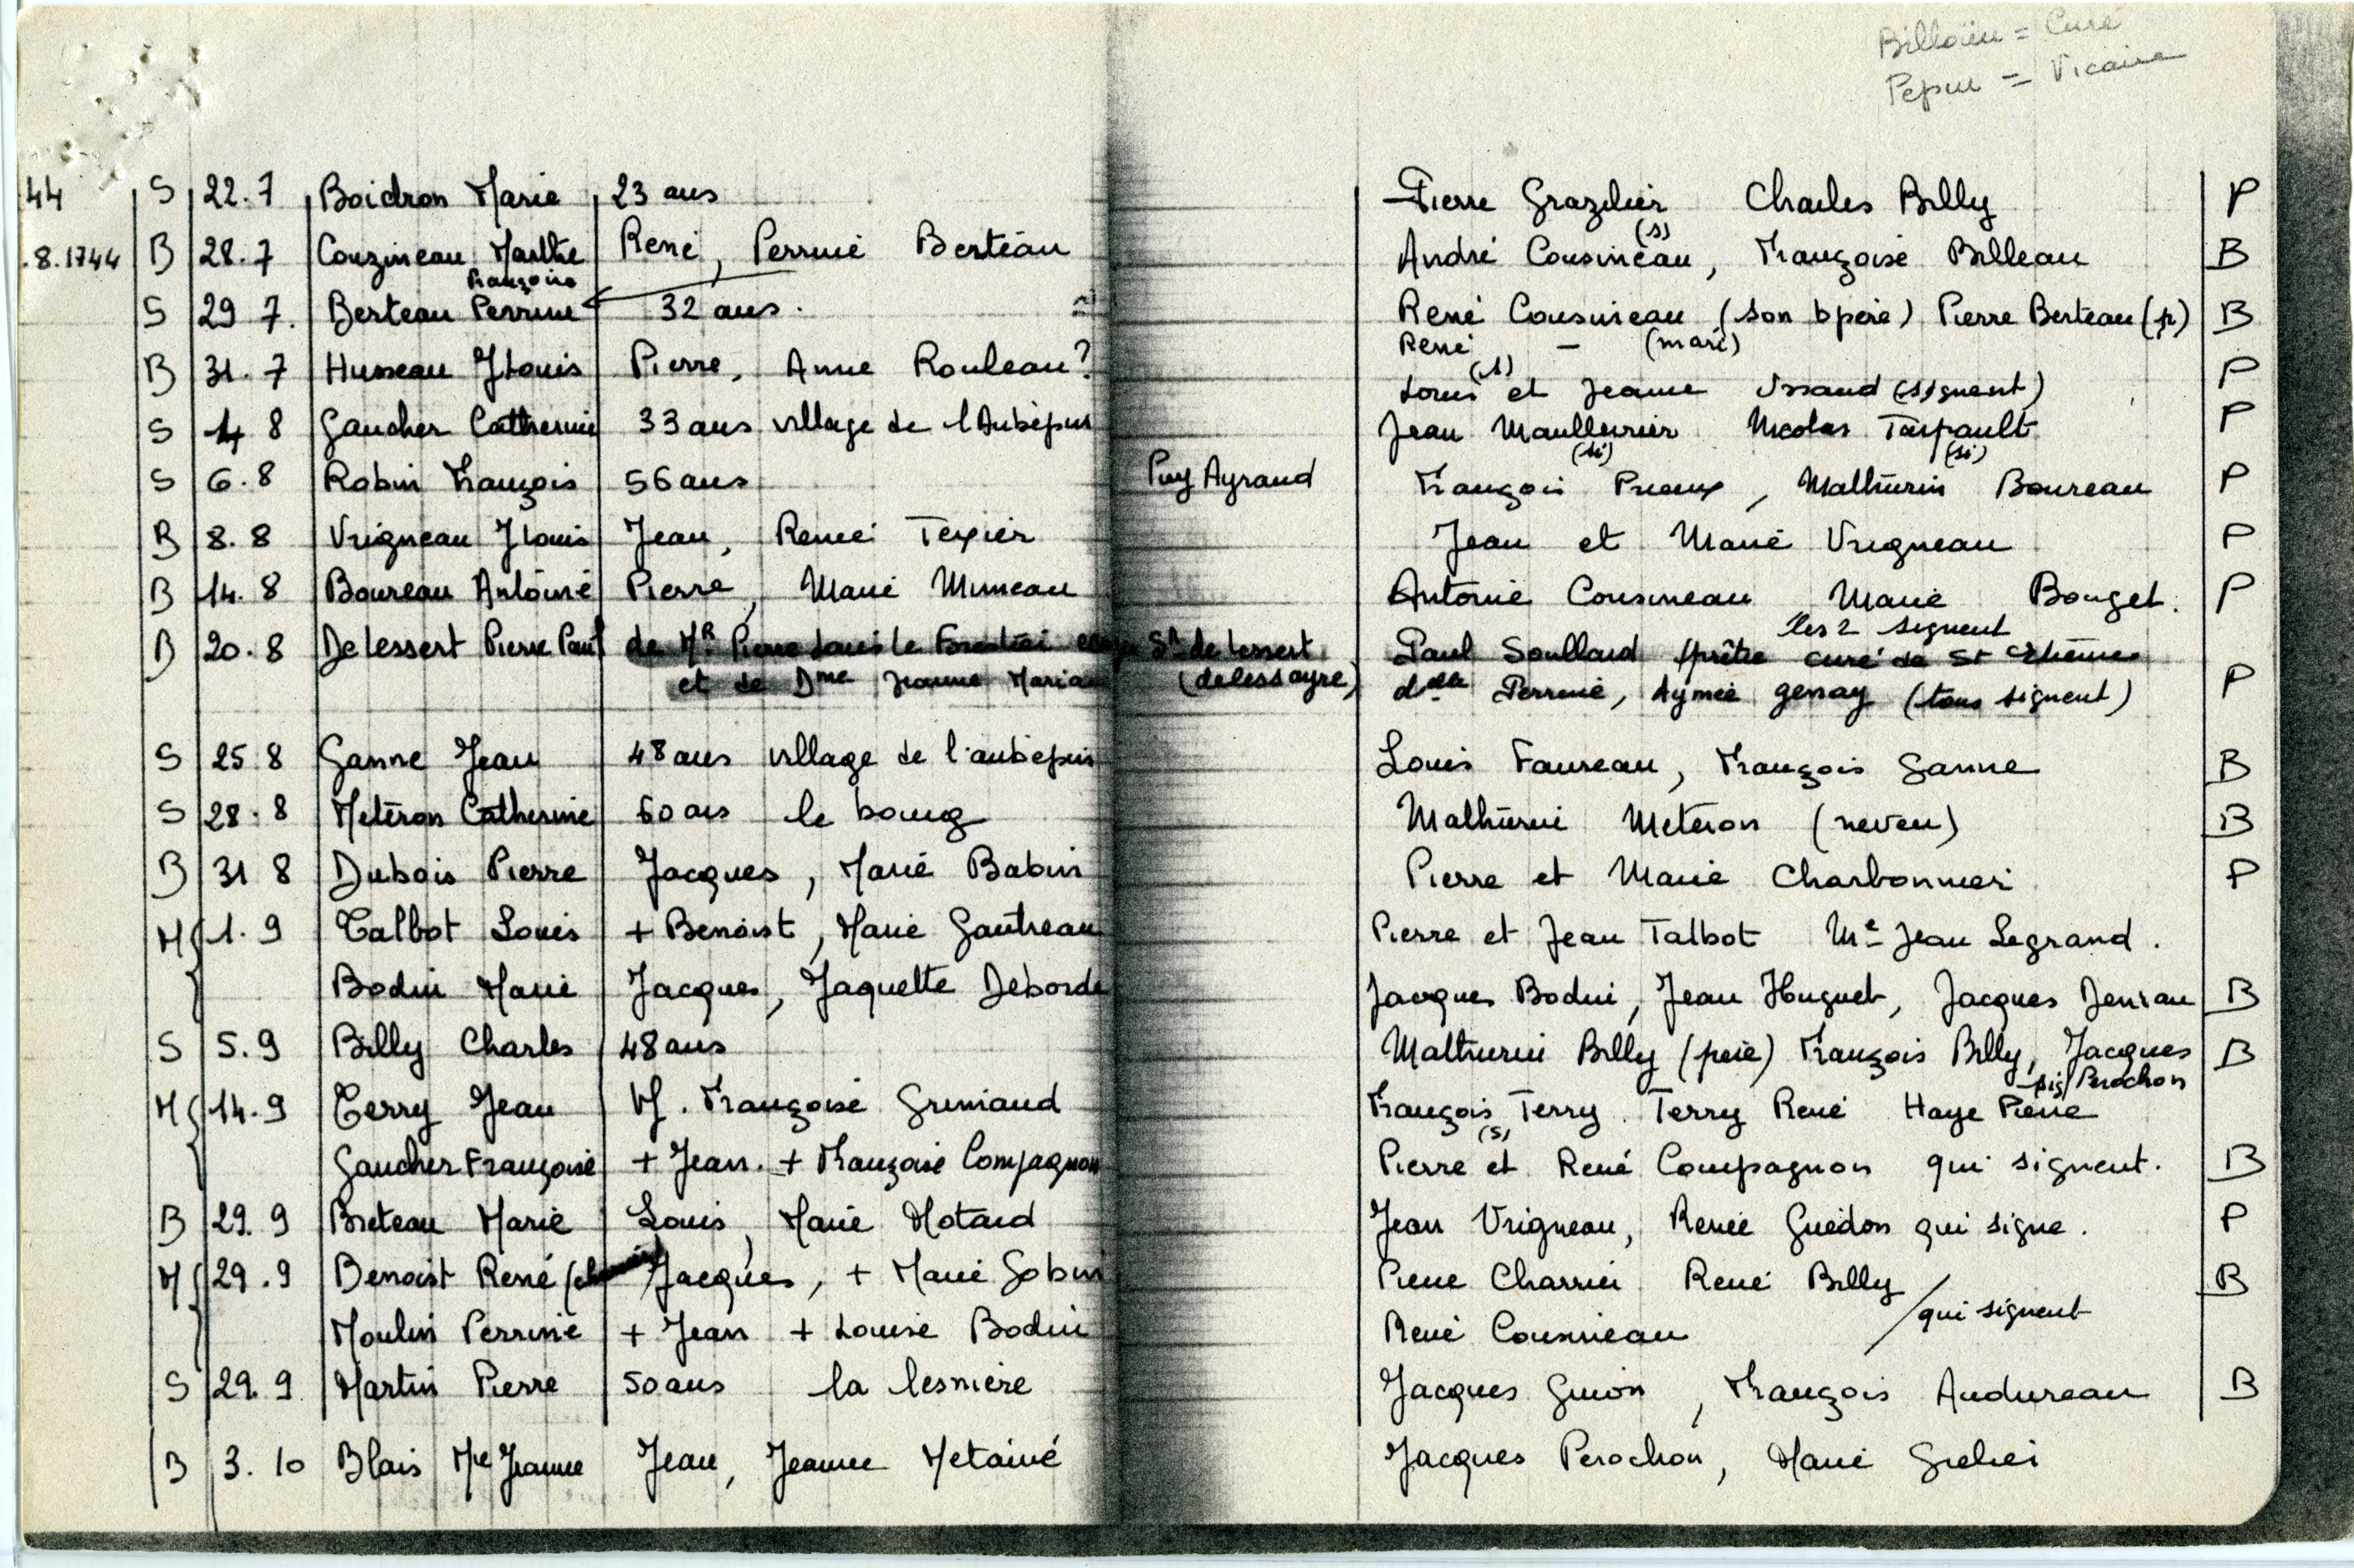 Billoüin = Curé
Pepin = Vicaire
44 S 22.7 Boidron Marie 23 ans Pierre Grazilier Charles Billy P
.8.1744 B 28.7 Couzineau Marthe René, Perrine Berteau André Cousineau (s), Françoise Billeau B
Françoise
S 29 7. Berteau Perrine 32 ans. René Cousineau (son bpère) Pierre Berteau (p) B
René - (mari)
B 31.7 Husseau JLouis Pierre, Anne Rouleau? Louis (s) et Jeanne Ussaud (signent) P
S 4 8 Gaucher Catherine 33 ans village de l'Aubépin Jean Maullevrier Nicolas Taipault P
(si) (si)
S 6.8 Robin François 56 ans Puy Ayraud François Preaux, Mathurin Boureau P
B 8.8 Vrigneau JLouis Jean, Renée Texier Jean et Marie Vrigneau P
B 14.8 Boureau Antoine Pierre, Marie Mimeau Antoine Cousineau Marie Bouget. P
les 2 signent
B 20.8 De Lessert Pierre Paul de Mr Pierre Louis le Forestier Sr de Lessert Paul Soullard prêtre curé de St Etienne
et de Dme Jeanne Maria (delessayre) delle Perrine, Aymée genay (tous signent) P
S 25 8 Ganne Jean 48 ans village de l'aubepin Louis Faureau, François Ganne B
S 28.8 Meteron Catherine 60 ans le bourg Mathurin Meteron (neveu) B
B 31 8 Dubois Pierre Jacques, Marie Babin Pierre et Marie Charbonnier P
M 1.9 Talbot Louis + Benoist, Marie Gautreau Pierre et Jean Talbot Me Jean Legrand.
Bodin Marie Jacques, Jaquette Deborde Jacques Bodin, Jean Huguet, Jacques Deniau B
S 5.9 Billy Charles 48 ans Mathurin Billy (père) François Billy, Jacques B
Perochon
M 14.9 Terry Jean Vf. Françoise Grimaud François Terry. Terry René Haye Pierre
(s)
Gaucher Françoise + Jean. + Françoise Compagnon Pierre et René Compagnon qui signent. B
B 29.9 Breteau Marie Louis, Marie Motard Jean Vrigneau, Renée Guédon qui signe. P
M 29.9 Benoist René Jacques, + Marie Gobin Pierre Charrier René Billy B
qui signent
Moulin Perrine + Jean + Louise Bodin René Cousineau
S 29.9 Martin Pierre 50 ans la lesnière Jacques Guion, François Audureau B
B 3.10 Blais Mie Jeanne Jean, Jeanne Metaivé Jacques Perochon, Marie Grelier